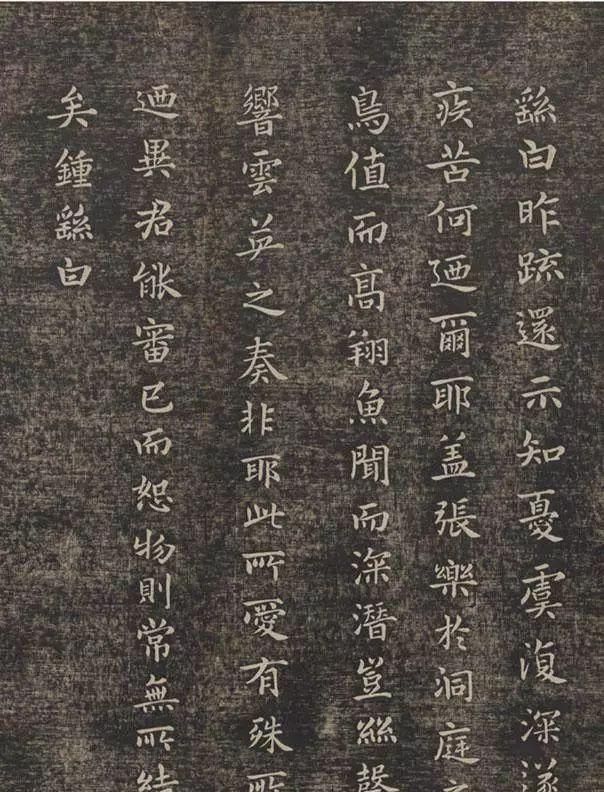 繇白昨疏還示知憂虞復深遂
疾苦何迺爾耶盖張樂於洞庭之
鳥值而高翔魚聞而深潛豈絲磬
響雲英之奏非耶此所愛有殊所
迺異君能審己而恕物則常無所結
矣鍾繇白